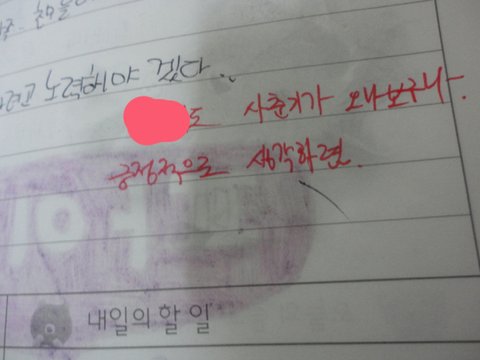 노력해야 겠다..
도 사춘기가 오나보구나.
긍정적으로 생각하면.
내일의 할 일